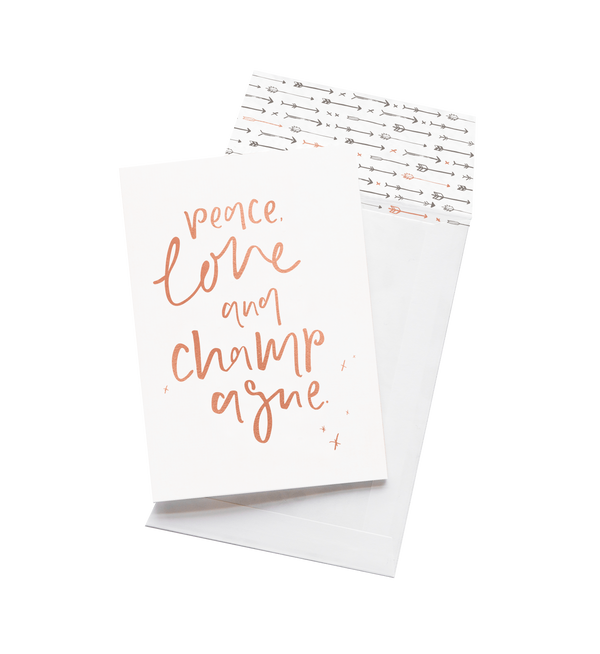 peace,
love
and
champ
agne.